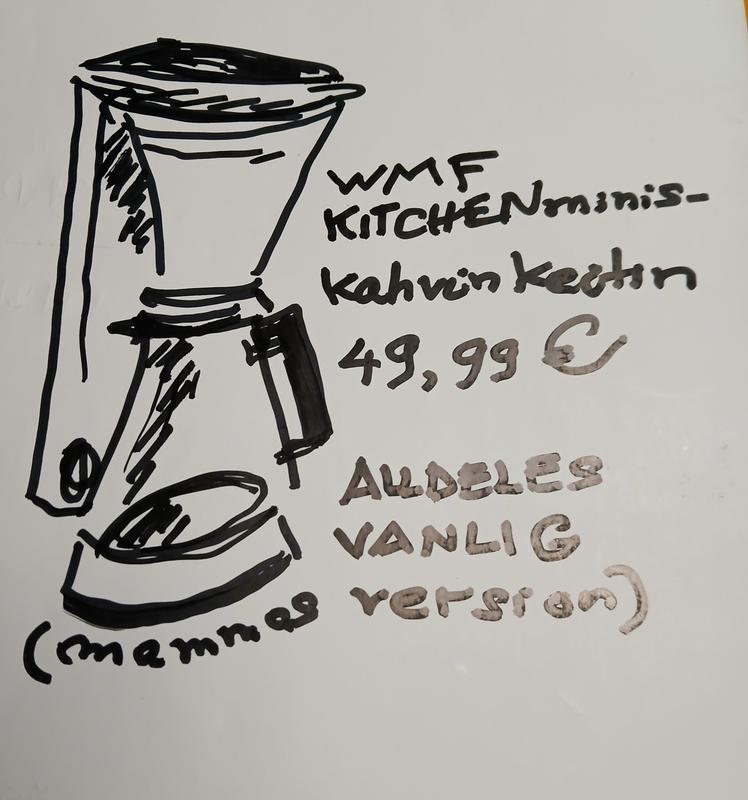 WMF
KITCHENminis-
kahvinkeitin
49,99 €
ALLDELES
VANLIG
(mammas version)